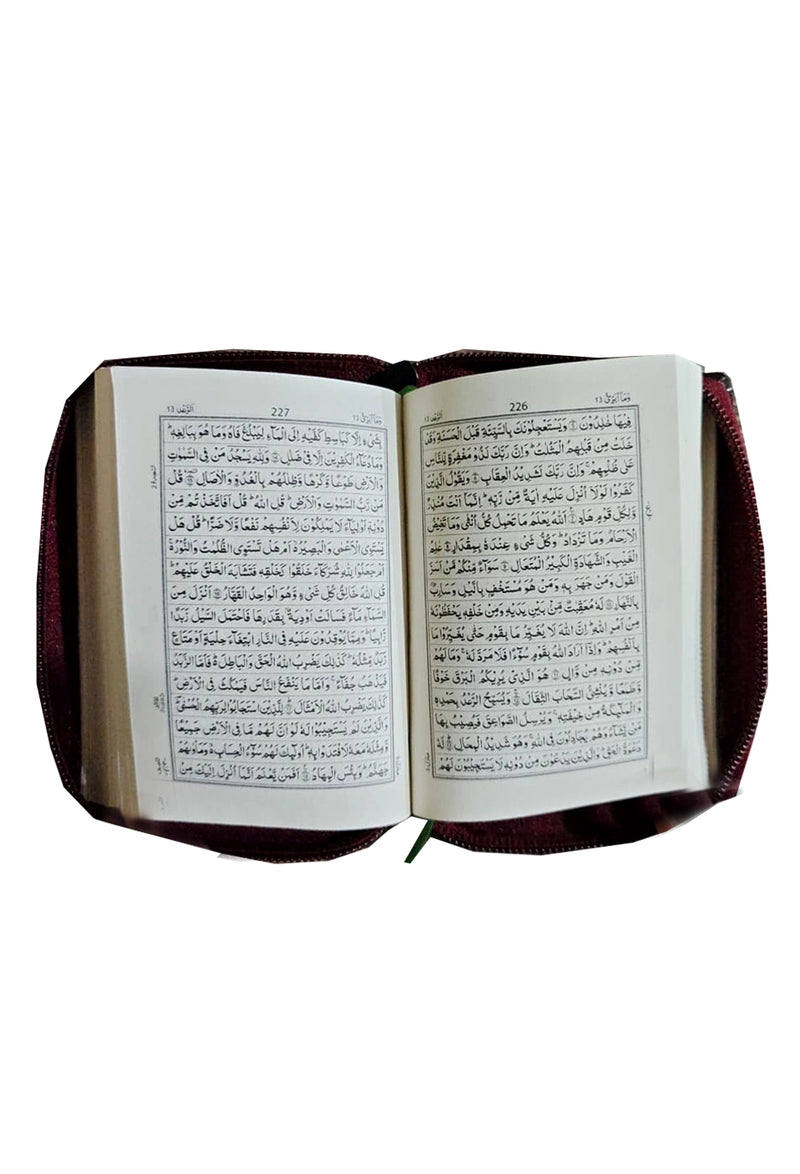 وَمَآ اُبَرِّئُ 13
226
اَلرَّعْد 13
فِيْهَا خٰلِدُوْنَ ۞ وَيَسْتَعْجِلُوْنَكَ بِالسَّيِّئَةِ قَبْلَ الْحَسَنَةِ وَقَدْ
خَلَتْ مِنْ قَبْلِهِمُ الْمَثُلٰتُ ؕ وَاِنَّ رَبَّكَ لَذُوْ مَغْفِرَةٍ لِّلنَّاسِ
عَلٰى ظُلْمِهِمْ ۚ وَاِنَّ رَبَّكَ لَشَدِيْدُ الْعِقَابِ ۞ وَيَقُوْلُ الَّذِيْنَ
كَفَرُوْا لَوْلَاۤ اُنْزِلَ عَلَيْهِ اٰيَةٌ مِّنْ رَّبِّهٖ ؕ اِنَّمَاۤ اَنْتَ مُنْذِرٌ
وَّلِكُلِّ قَوْمٍ هَادٍ ۞ اَللّٰهُ يَعْلَمُ مَا تَحْمِلُ كُلُّ اُنْثٰى وَمَا تَغِيْضُ
الْاَرْحَامُ وَمَا تَزْدَادُ ؕ وَكُلُّ شَىْءٍ عِنْدَهٗ بِمِقْدَارٍ ۞ عٰلِمُ
الْغَيْبِ وَالشَّهَادَةِ الْكَبِيْرُ الْمُتَعَالِ ۞ سَوَآءٌ مِّنْكُمْ مَّنْ اَسَرَّ
الْقَوْلَ وَمَنْ جَهَرَ بِهٖ وَمَنْ هُوَ مُسْتَخْفٍۢ بِالَّيْلِ وَسَارِبٌۢ
بِالنَّهَارِ ۞ لَهٗ مُعَقِّبٰتٌ مِّنْۢ بَيْنِ يَدَيْهِ وَمِنْ خَلْفِهٖ يَحْفَظُوْنَهٗ
مِنْ اَمْرِ اللّٰهِ ؕ اِنَّ اللّٰهَ لَا يُغَيِّرُ مَا بِقَوْمٍ حَتّٰى يُغَيِّرُوْا مَا
بِاَنْفُسِهِمْ ؕ وَاِذَاۤ اَرَادَ اللّٰهُ بِقَوْمٍ سُوْٓءًا فَلَا مَرَدَّ لَهٗ ۚ وَمَا لَهُمْ
مِّنْ دُوْنِهٖ مِنْ وَّالٍ ۞ هُوَ الَّذِىْ يُرِيْكُمُ الْبَرْقَ خَوْفًا
وَّطَمَعًا وَّيُنْشِئُ السَّحَابَ الثِّقَالَ ۞ وَيُسَبِّحُ الرَّعْدُ بِحَمْدِهٖ
وَالْمَلٰٓئِكَةُ مِنْ خِيْفَتِهٖ ۚ وَيُرْسِلُ الصَّوَاعِقَ فَيُصِيْبُ بِهَا
مَنْ يَّشَآءُ وَهُمْ يُجَادِلُوْنَ فِى اللّٰهِ ۚ وَهُوَ شَدِيْدُ الْمِحَالِ ۞ لَهٗ
دَعْوَةُ الْحَقِّ ؕ وَالَّذِيْنَ يَدْعُوْنَ مِنْ دُوْنِهٖ لَا يَسْتَجِيْبُوْنَ لَهُمْ
وَمَآ اُبَرِّئُ 13
227
اَلرَّعْد 13
بِشَىْءٍ اِلَّا كَبَاسِطِ كَفَّيْهِ اِلَى الْمَآءِ لِيَبْلُغَ فَاهُ وَمَا هُوَ بِبَالِغِهٖ ؕ
وَمَا دُعَآءُ الْكٰفِرِيْنَ اِلَّا فِىْ ضَلٰلٍ ۞ وَلِلّٰهِ يَسْجُدُ مَنْ فِى السَّمٰوٰتِ
وَالْاَرْضِ طَوْعًا وَّكَرْهًا وَّظِلٰلُهُمْ بِالْغُدُوِّ وَالْاٰصَالِ ۞ قُلْ
مَنْ رَّبُّ السَّمٰوٰتِ وَالْاَرْضِ ؕ قُلِ اللّٰهُ ؕ قُلْ اَفَاتَّخَذْتُمْ مِّنْ
دُوْنِهٖۤ اَوْلِيَآءَ لَا يَمْلِكُوْنَ لِاَنْفُسِهِمْ نَفْعًا وَّلَا ضَرًّا ؕ قُلْ هَلْ
يَسْتَوِى الْاَعْمٰى وَالْبَصِيْرُ ۙ اَمْ هَلْ تَسْتَوِى الظُّلُمٰتُ وَالنُّوْرُ ۚ
اَمْ جَعَلُوْا لِلّٰهِ شُرَكَآءَ خَلَقُوْا كَخَلْقِهٖ فَتَشَابَهَ الْخَلْقُ عَلَيْهِمْ ؕ
قُلِ اللّٰهُ خَالِقُ كُلِّ شَىْءٍ وَّهُوَ الْوَاحِدُ الْقَهَّارُ ۞ اَنْزَلَ مِنَ
السَّمَآءِ مَآءً فَسَالَتْ اَوْدِيَةٌۢ بِقَدَرِهَا فَاحْتَمَلَ السَّيْلُ زَبَدًا
رَّابِيًا ؕ وَمِمَّا يُوْقِدُوْنَ عَلَيْهِ فِى النَّارِ ابْتِغَآءَ حِلْيَةٍ اَوْ مَتَاعٍ
زَبَدٌ مِّثْلُهٗ ؕ كَذٰلِكَ يَضْرِبُ اللّٰهُ الْحَقَّ وَالْبَاطِلَ ؕ فَاَمَّا الزَّبَدُ
فَيَذْهَبُ جُفَآءً ۚ وَاَمَّا مَا يَنْفَعُ النَّاسَ فَيَمْكُثُ فِى الْاَرْضِ ؕ
كَذٰلِكَ يَضْرِبُ اللّٰهُ الْاَمْثَالَ ۞ لِلَّذِيْنَ اسْتَجَابُوْا لِرَبِّهِمُ الْحُسْنٰى ؕ
وَالَّذِيْنَ لَمْ يَسْتَجِيْبُوْا لَهٗ لَوْ اَنَّ لَهُمْ مَّا فِى الْاَرْضِ جَمِيْعًا
وَّمِثْلَهٗ مَعَهٗ لَافْتَدَوْا بِهٖ ؕ اُولٰٓئِكَ لَهُمْ سُوْٓءُ الْحِسَابِ ۙ وَمَاْوٰىهُمْ
جَهَنَّمُ ؕ وَبِئْسَ الْمِهَادُ ۞ اَفَمَنْ يَّعْلَمُ اَنَّمَاۤ اُنْزِلَ اِلَيْكَ مِنْ